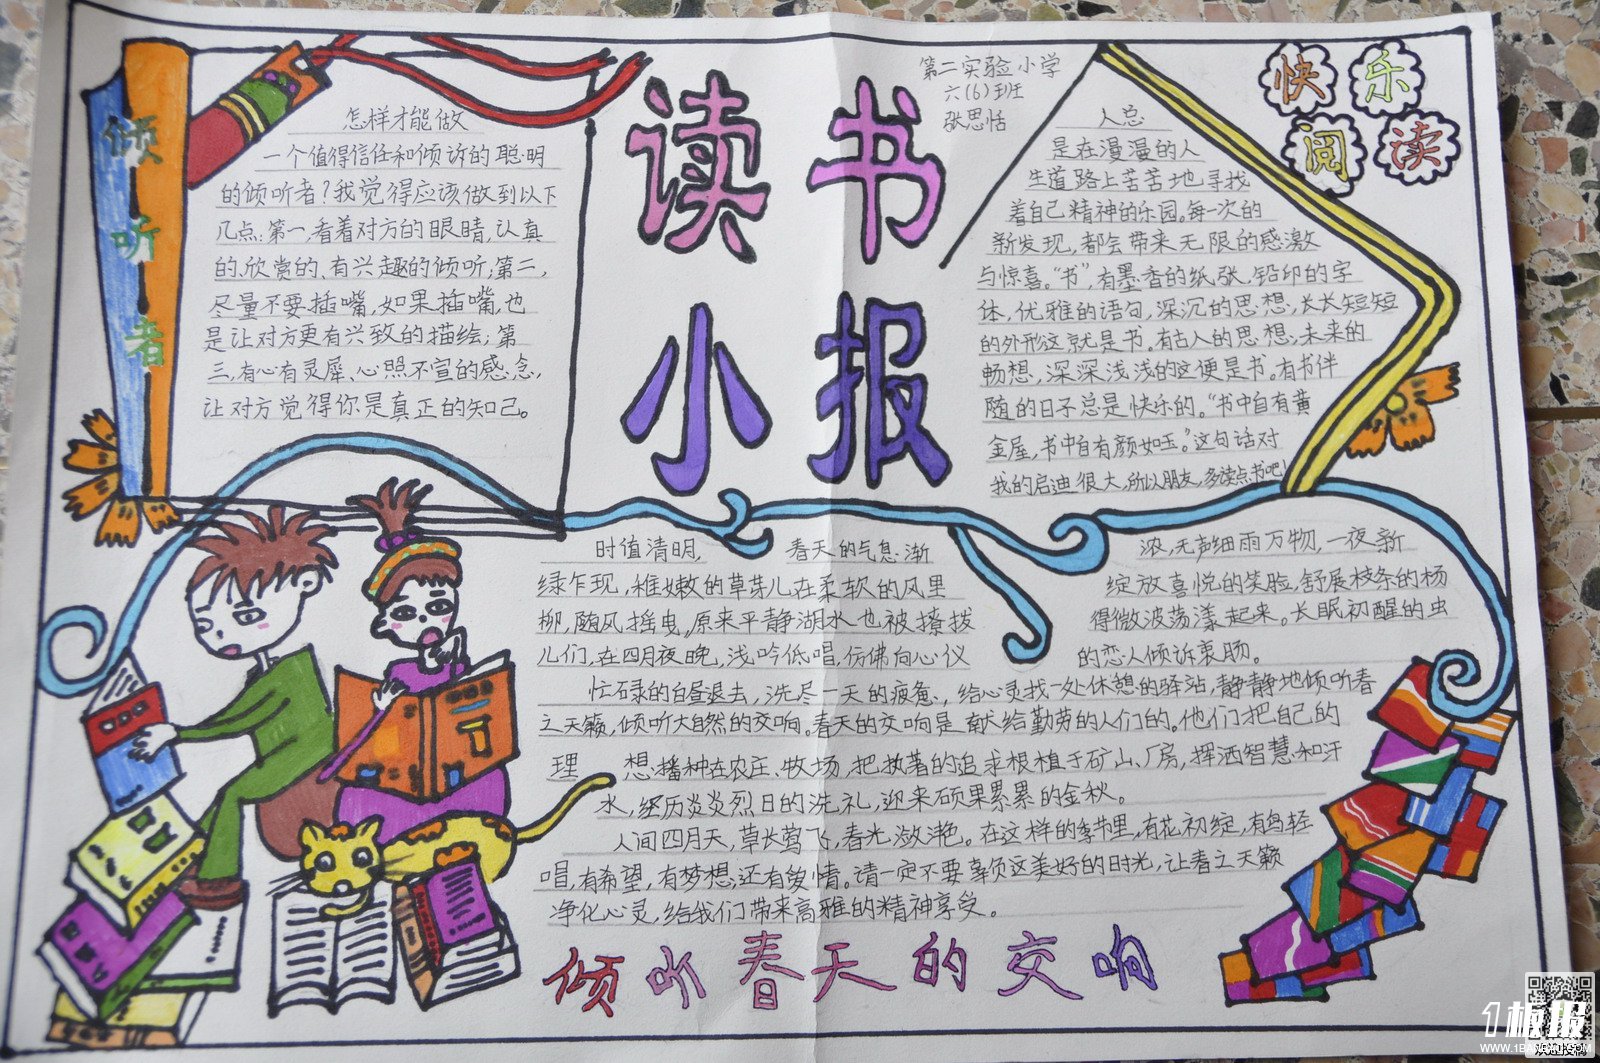 倾听者
怎样才能做
一个值得信任和倾诉的聪明
的倾听者?我觉得应该做到以下
几点:第一,看着对方的眼睛,认真
的、欣赏的、有兴趣的倾听;第二,
尽量不要插嘴,如果插嘴,也
是让对方更有兴致的描绘;第
三,有心有灵犀、心照不宣的感念,
让对方觉得你是真正的知己。
读书
小报
第二实验小学
六(6)班
张思恬
快乐
阅读
人总
是在漫漫的人
生道路上苦苦地寻找
着自己精神的乐园。每一次的
新发现,都会带来无限的感激
与惊喜。“书”,有墨香的纸张,铅印的字
体,优雅的语句,深沉的思想,长长短短
的外形这就是书,有古人的思想,未来的
畅想,深深浅浅的这便是书。有书伴
随的日子总是快乐的。“书中自有黄
金屋,书中自有颜如玉。”这句话对
我的启迪很大,所以朋友,多读点书吧!
时值清明,春天的气息渐浓,无声细雨万物,一夜新
绿乍现,稚嫩的草芽儿在柔软的风里绽放喜悦的笑脸,舒展枝条的杨
柳,随风摇曳,原来平静湖水也被撩拨得微波荡漾起来。长眠初醒的虫
儿们,在四月夜晚,浅吟低唱,仿佛向心仪的恋人倾诉衷肠。
忙碌的白昼退去,洗尽一天的疲惫,给心灵找一处休憩的驿站,静静地倾听春
之天籁,倾听大自然的交响。春天的交响是献给勤劳的人们的。他们把自己的
理想播种在农庄、牧场,把执著的追求根植于矿山、厂房,挥洒智慧和汗
水,经历炎炎烈日的洗礼,迎来硕果累累的金秋。
人间四月天,草长莺飞,春光潋滟。在这样的季节里,有花初绽,有鸟轻
唱,有希望,有梦想,还有爱情。请一定不要辜负这美好的时光,让春之天籁
净化心灵,给我们带来高雅的精神享受。
倾听春天的交响
1板报
WWW.1BANBAO.COM